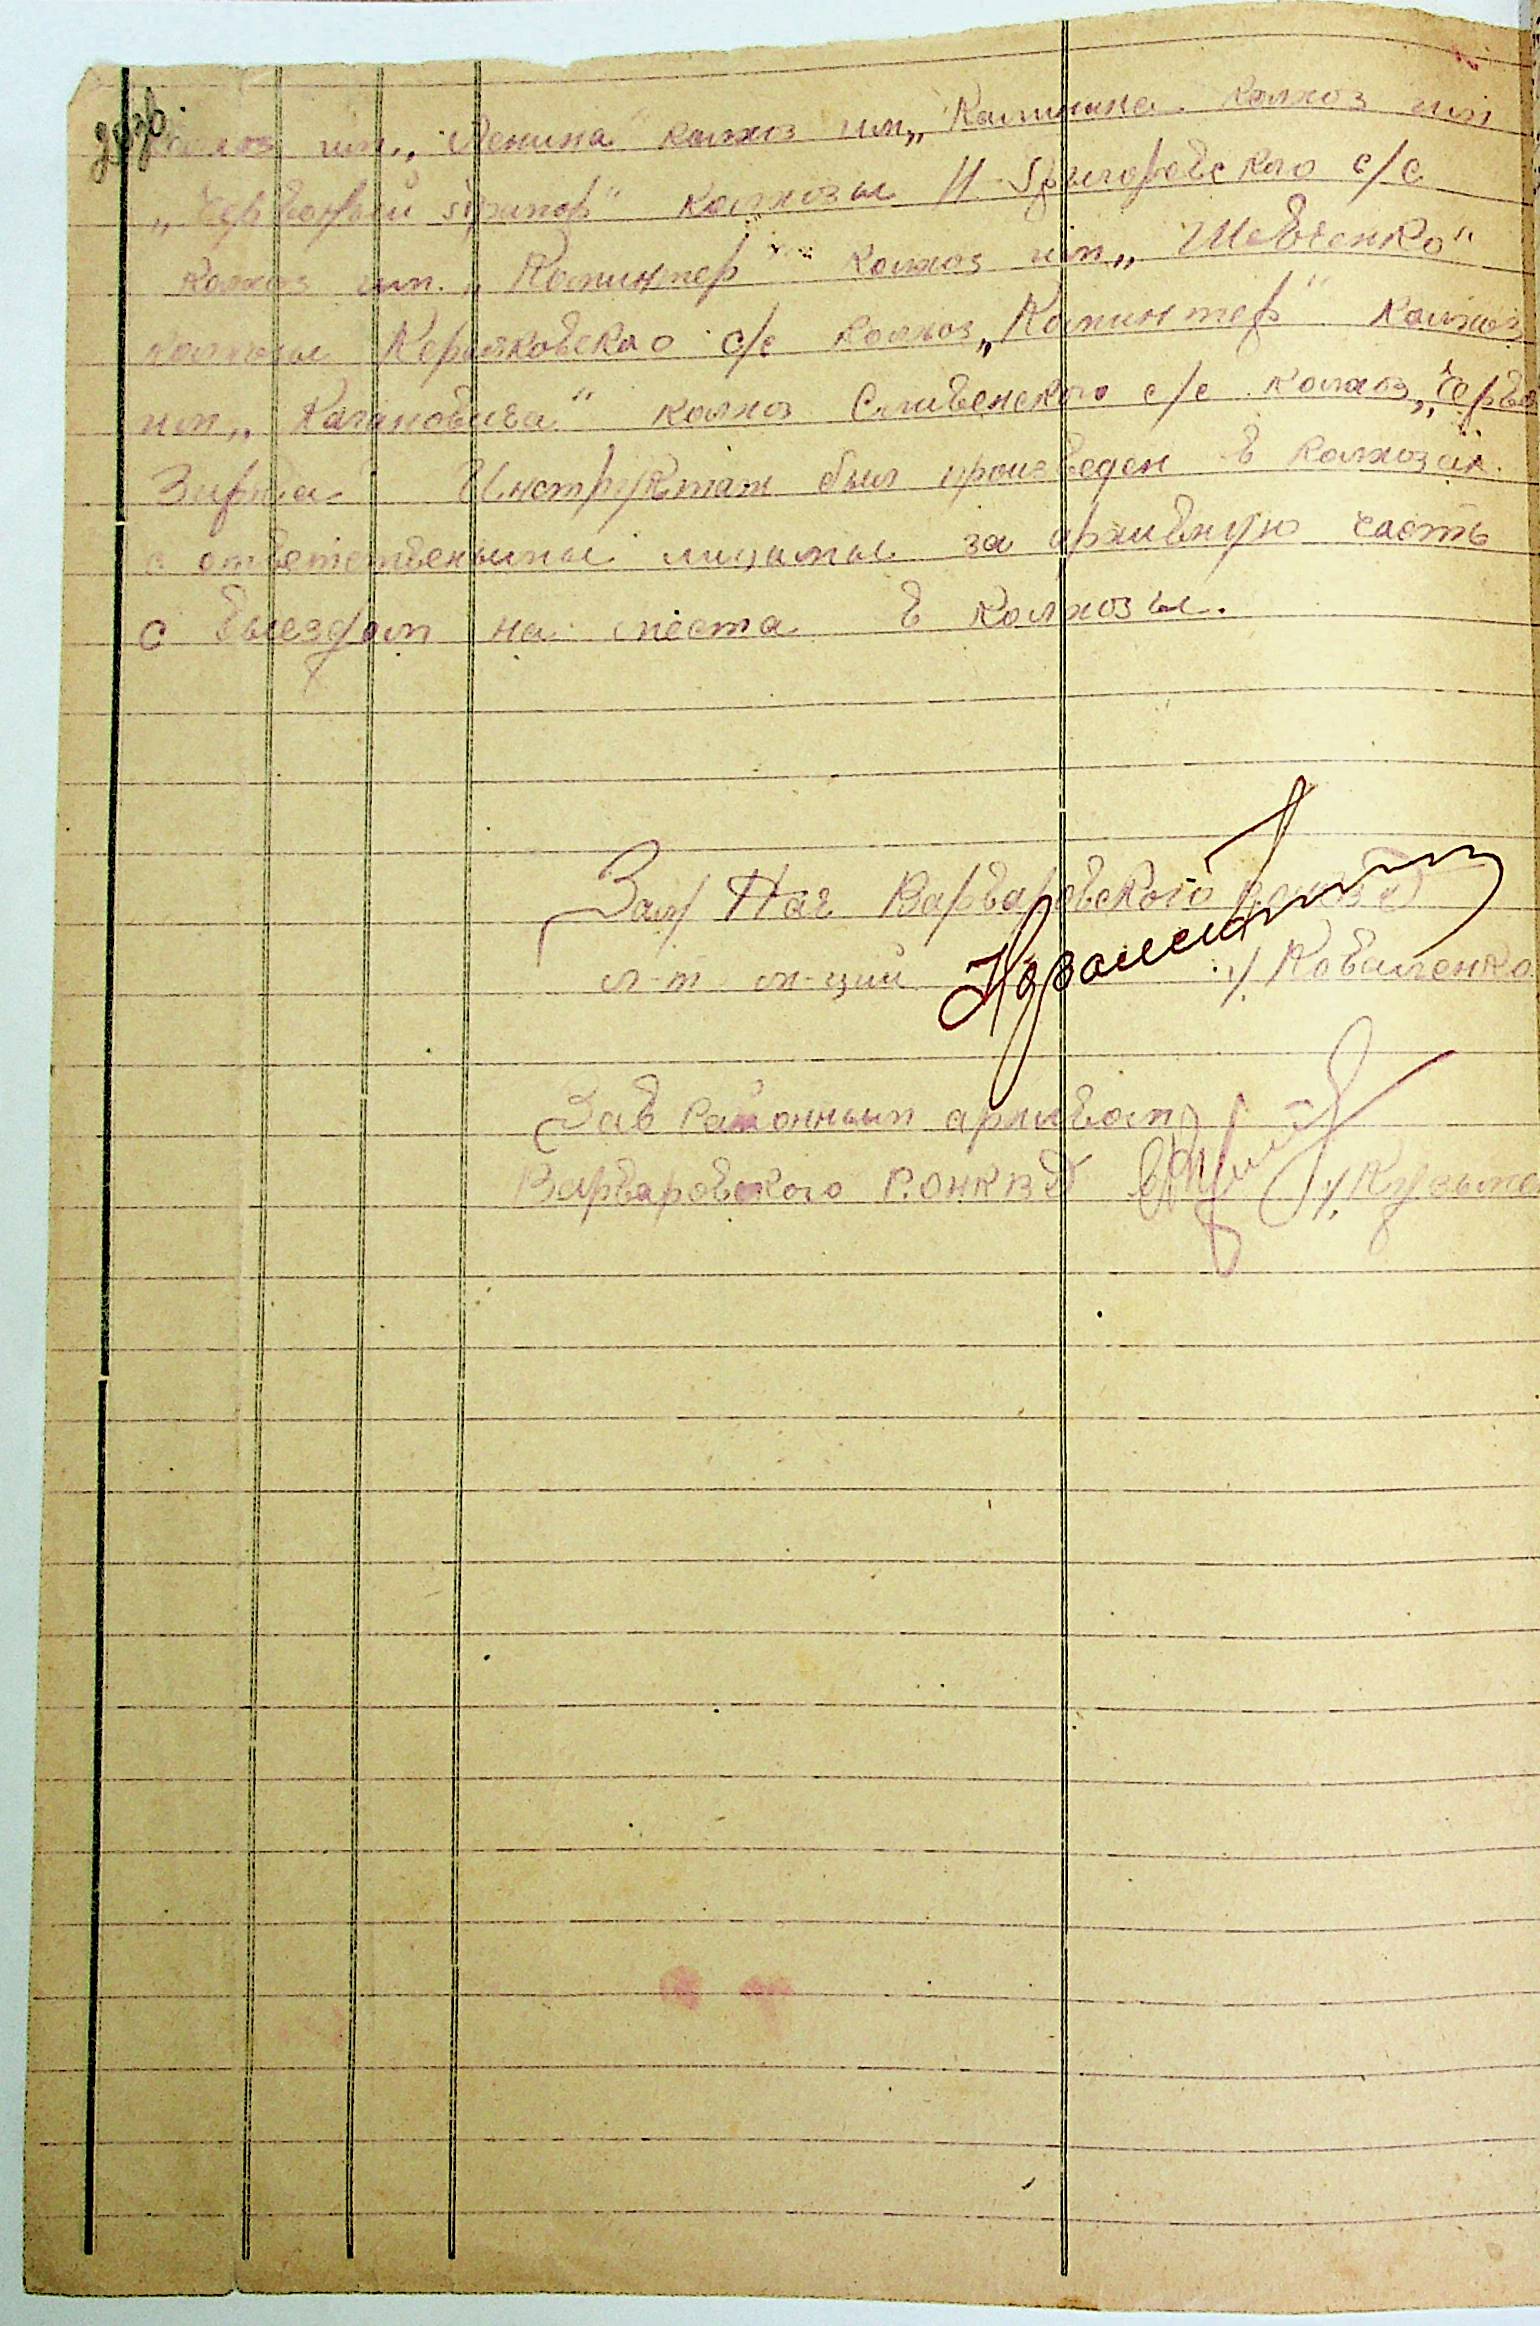 колхоз им. „Ленина“ колхоз им „Калинина колхоз им
„Червоный прапор“ колхозы Н-Григоревского с/с
колхоз им. „Коминтер колхоз им „Шевченко“
колхозы Кермяковского с/с колхоз „Коминтер“ колхоз
им „Кагановича“ колхоз Сливенского с/с колхоз „Черво
Зирка“ Инструктаж был произведен в колхозах.
с ответственными лицамы за архивную часть
с выездом на места в колхозы.
Зам Нач Варваровского РОНКВД
л-т м-ции /Коваленко
Зав Районным архивом
Варваровского РОНКВД /Кузьме